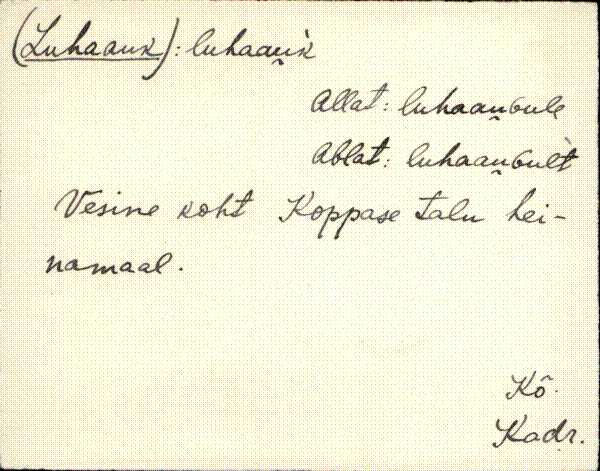 (Luhaauk): luhaau̬k̀
Allat: luhaau̬ɢule
Ablat: luhaau̬ɢult̀
Vesine koht Koppase talu hei-
namaal.
Kõ.
Kadr.